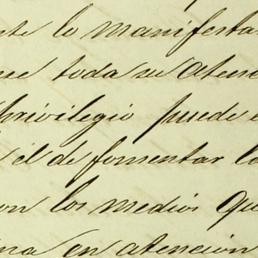 te lo manifesta
ce toda su aten
privilegio puede
él de fomentar l
on los medios qu
ma en atención